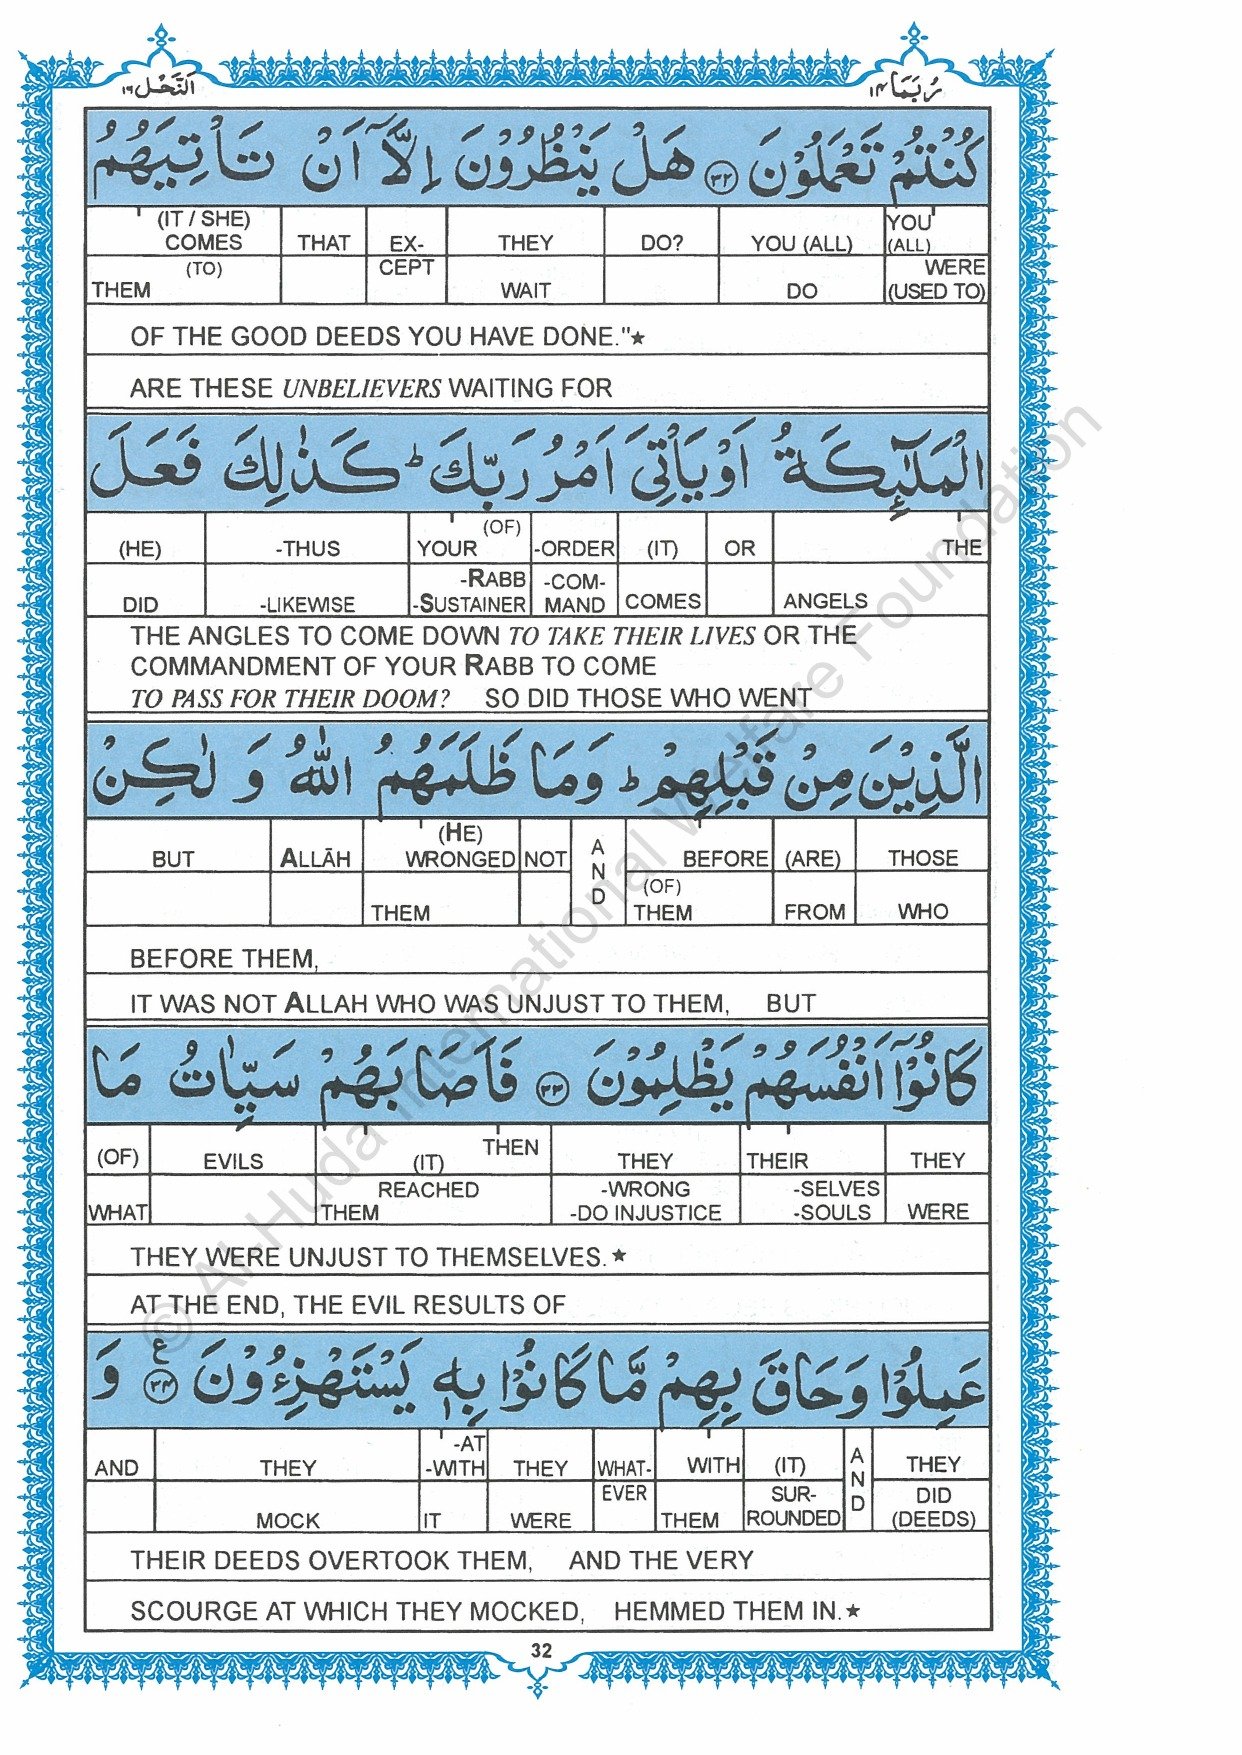 اَلنَّحْل ١٦
رُبَمَا ١٤
كُنْتُمْ تَعْمَلُوْنَ ٣٢ هَلْ يَنْظُرُوْنَ اِلَّاۤ اَنْ تَاْتِيَهُمُ
(IT / SHE) COMES THAT EX- THEY DO? YOU (ALL) YOU (ALL)
THEM (TO) CEPT WAIT DO WERE (USED TO)
OF THE GOOD DEEDS YOU HAVE DONE."★
ARE THESE UNBELIEVERS WAITING FOR
الْمَلٰٓئِكَةُ اَوْ يَاْتِيَ اَمْرُ رَبِّكَ ؕ كَذٰلِكَ فَعَلَ
(HE) -THUS YOUR (OF) -ORDER (IT) OR THE
DID -LIKEWISE -RABB -SUSTAINER -COM- MAND COMES ANGELS
THE ANGLES TO COME DOWN TO TAKE THEIR LIVES OR THE
COMMANDMENT OF YOUR RABB TO COME
TO PASS FOR THEIR DOOM? SO DID THOSE WHO WENT
الَّذِيْنَ مِنْ قَبْلِهِمْ ؕ وَمَا ظَلَمَهُمُ اللّٰهُ وَ لٰكِنْ
BUT ALLĀH (HE) WRONGED NOT AND BEFORE (ARE) THOSE
THEM (OF) THEM FROM WHO
BEFORE THEM,
IT WAS NOT ALLAH WHO WAS UNJUST TO THEM, BUT
كَانُوْۤا اَنْفُسَهُمْ يَظْلِمُوْنَ ٣٣ فَاَصَابَهُمْ سَيِّاٰتُ مَا
(OF) EVILS (IT) THEN THEY THEIR THEY
WHAT REACHED THEM -WRONG -DO INJUSTICE -SELVES -SOULS WERE
THEY WERE UNJUST TO THEMSELVES.★
AT THE END, THE EVIL RESULTS OF
عَمِلُوْا وَحَاقَ بِهِمْ مَّا كَانُوْا بِهٖ يَسْتَهْزِءُوْنَ ٣٤ ع وَ
AND THEY -AT -WITH THEY WHAT- WITH (IT) AND THEY
MOCK IT WERE EVER THEM SUR- ROUNDED DID (DEEDS)
THEIR DEEDS OVERTOOK THEM, AND THE VERY
SCOURGE AT WHICH THEY MOCKED, HEMMED THEM IN.★
32
© Al-Huda International Welfare Foundation